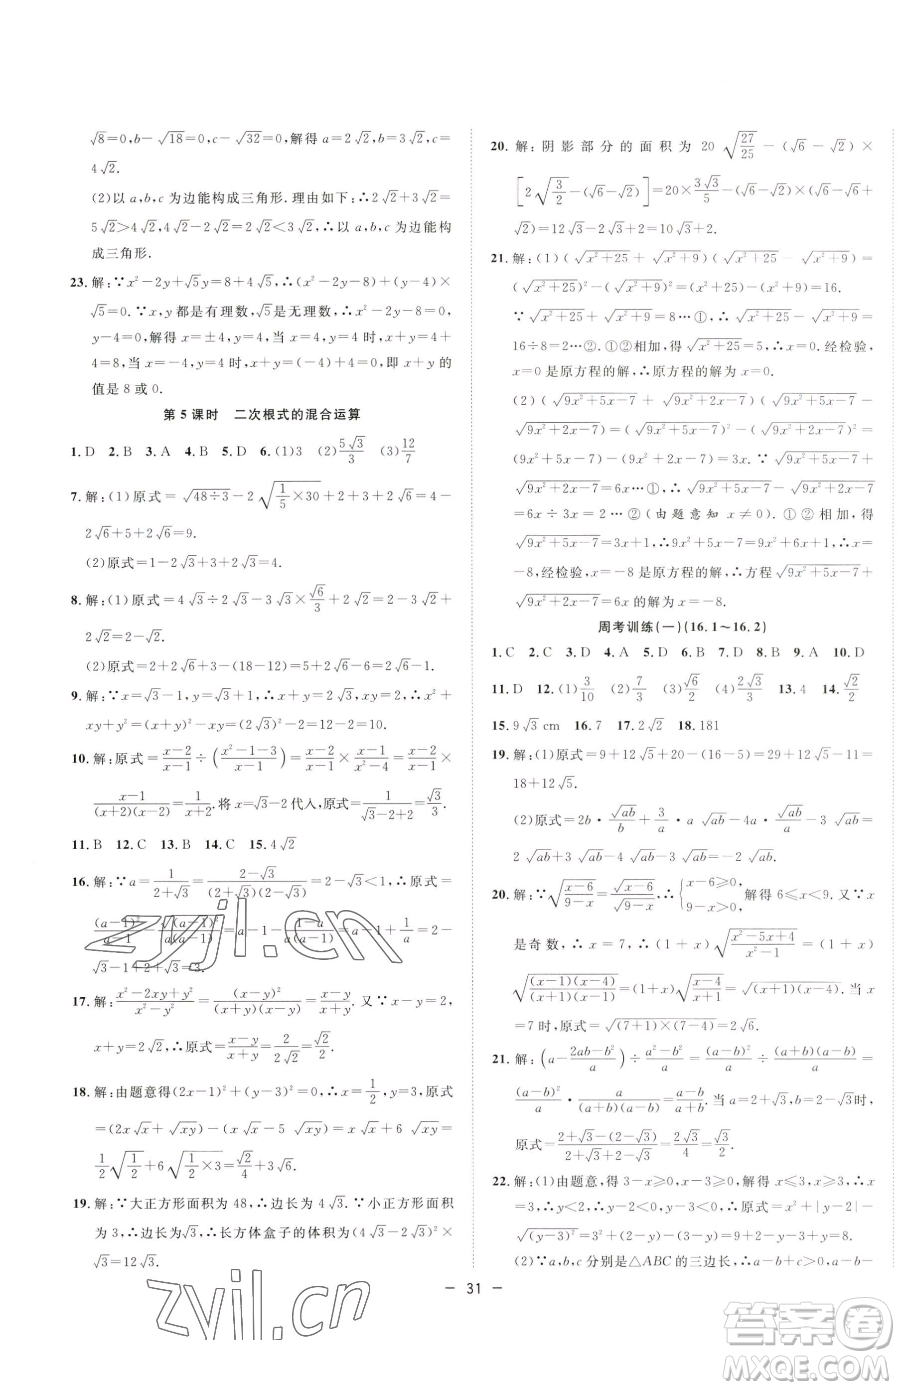 √8=0,b-√18=0,c-√32=0,解得a=2√2,b=3√2,c=
4√2.
(2)以a,b,c为边能构成三角形.理由如下:∴2√2+3√2=
5√2>4√2,4√2-2√2=2√2<3√2,∴以a,b,c为边能构
成三角形.
23.解:∵x²-2y+√5y=8+4√5,∴(x²-2y-8)+(y-4)×
√5=0.∵x,y都是有理数,√5是无理数,∴x²-2y-8=0,
y-4=0,解得x=±4,y=4,当x=4,y=4时,x+y=4+
4=8,当x=-4,y=4时,x+y=(-4)+4=0,即x+y的
值是8或0.
第5课时 二次根式的混合运算
1.D 2.B 3.A 4.B 5.D 6.(1)3 (2)5√3/3 (3)12/7
7.解:(1)原式=√(48÷3)-2√(1/5×30)+2+3+2√6=4-
2√6+5+2√6=9.
(2)原式=1-2√3+3+2√3=4.
8.解:(1)原式=4√3÷2√3-3√3×√6/3+2√2=2-3√2+
2√2=2-√2.
(2)原式=2+2√3+6-(18-12)=2+2√3.
9.解:∵x=√3-1,y=√3+1,∴x+y=2√3,xy=2,∴x²+
xy+y²=(x+y)²-xy=(2√3)²-2=12-2=10.
10.解:原式=(x-2)/(x-1)÷((x²-1-3)/(x-1))=(x-2)/(x-1)×(x-1)/(x²-4)=(x-2)/(x-1)×
(x-1)/((x+2)(x-2))=1/(x+2).将x=√3-2代入,原式=1/(√3-2+2)=√3/3.
11.B 12.C 13.C 14.C 15.4√2
16.解:∵a=1/(2+√3)=(2-√3)/((2+√3)(2-√3))=2-√3<1,∴原式=
(a-1)²/(a-1)-√(a-1)²/(a(a-1))=a-1-(1-a)/(a(a-1))=a-1+1/a=2-
√3-1+2+√3=3.
17.解:(x²-2xy+y²)/(x²-y²)=(x-y)²/((x+y)(x-y))=(x-y)/(x+y).又∵x-y=√2,
x+y=2√2,∴原式=(x-y)/(x+y)=√2/(2√2)=1/2.
18.解:由题意得(2x-1)²+(y-3)²=0,∴x=1/2,y=3,∴原式
=(2x√x+√xy)-(x√x-5√xy)=x√x+6√xy=
1/2√(1/2)+6√(1/2×3)=√2/4+3√6.
19.解:∵大正方形面积为48,∴边长为4√3.∵小正方形面积
为3,∴边长为√3,∴长方体盒子的体积为(4√3-2√3)²×
√3=12√3.
20.解:阴影部分的面积为20√(27/25)-(√6-√2)×
[2√(3/2)-(√6-√2)]=20×3√3/5-(√6-√2)×(√6-√6+
√2)=12√3-√12+2=10√3+2.
21.解:(1)(√(x²+25)+√(x²+9))(√(x²+25)-√(x²+9))=
(√(x²+25))²-(√(x²+9))²=(x²+25)-(x²+9)=16.
∵√(x²+25)+√(x²+9)=8…①,∴√(x²+25)-√(x²+9)=
16÷8=2…②.①②相加,得√(x²+25)=5,∴经检验,
x=0是原方程的解,∴原方程的解为x=0.
(2)(√(9x²+5x-7)+√(9x²+2x-7))(√(9x²+5x-7)-
√(9x²+2x-7))=(√(9x²+5x-7))²-(√(9x²+2x-7))²=
(9x²+5x-7)-(9x²+2x-7)=3x.∵√(9x²+5x-7)+
√(9x²+2x-7)=6x…①,∴√(9x²+5x-7)-√(9x²+2x-7)
=6x÷3x=2…②(由题意知x≠0).①②相加,得
√(9x²+5x-7)=3x+1,∴9x²+5x-7=9x²+6x+1,∴x=
-8,经检验,x=-8是原方程的解,∴方程√(9x²+5x-7)+
√(9x²+5x-7)=6x的解为x=-8.
周考训练(一)(16.1~16.2)
1.C 2.C 3.D 4.A 5.D 6.D 7.B 8.D 9.A 10.D
11.D 12.(1)3/10 (2)7/3 (3)√6/2 (4)2√3/3 13.4 14.√2/2
15.9√3 cm 16.7 17.2√2 18.181
19.解:(1)原式=9+12√5+20-(16-5)=29+12√5-11=
18+12√5.
(2)原式=2b·√ab/b+3/a·a√ab-4a·√ab/a-3√ab=
2√ab+3√ab-4√ab-3√ab=-2√ab.
20.解:∵√((x-6)/(9-x))=√(x-6)/√(9-x),∴{x-6≥0, 9-x>0,解得6≤x<9.又∵x
是奇数,∴x=7,∴(1+x)√((x²-5x+4)/(x²-1))=(1+x)
√((x-1)(x-4)/((x+1)(x-1)))=(1+x)√((x-4)/(x+1))=√((1+x)(x-4)).当x
=7时,原式=√((7+1)×(7-4))=2√6.
21.解:(a-(2ab-b²)/a)÷(a²-b²)/a=(a-b)²/a÷(a+b)(a-b)/a=
(a-b)²/a·a/((a+b)(a-b))=(a-b)/(a+b).当a=2+√3,b=2-√3时,
原式=(2+√3-(2-√3))/(2+√3+2-√3)=2√3/4=√3/2.
22.解:(1)由题意,得3-x≥0,x-3≥0,解得x=3,∴y+2
<0,∴y<-2,∴y-2<0,y-3<0,∴原式=x²+|y-2|-
√(y-3)²=3²+(2-y)-(3-y)=9+2-y-3+y=8.
(2)∵a,b,c分别是△ABC的三边长,∴a-b+c>0,c-a-
— 31 —
zyjl.cn
zyjl.cn
答案圈
MXQE.COM